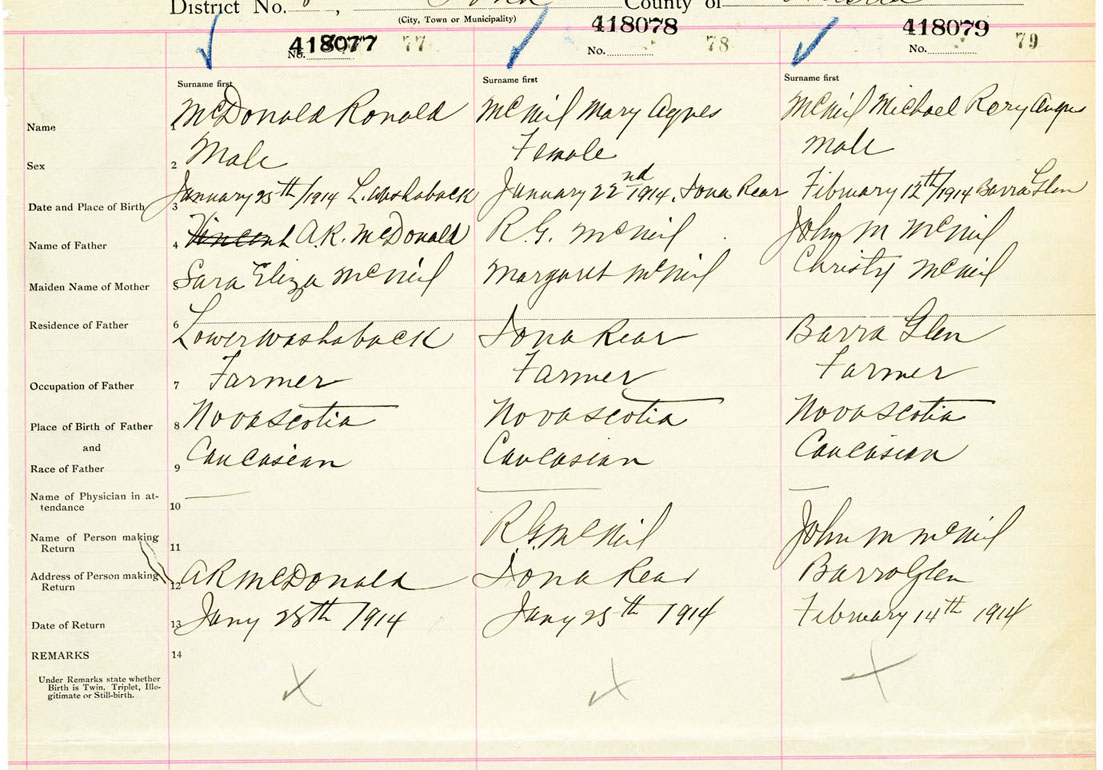 District No. , Iona County of
(City, Town or Municipality)
418077 77 418078 78 418079 79
No. No. No.
Surname first Surname first Surname first
Name 1 McDonald Ronald McNeil Mary Agnes McNeil Michael Rory Angus
Sex 2 Male Female Male
Date and Place of Birth 3 January 25th/1914 L. Washaback January 22nd 1914. Iona Rear February 12th/1914 Barra Glen
Name of Father 4 Vincent A.R. McDonald R.G. McNeil John M McNeil
Maiden Name of Mother 5 Sara Eliza McNeil Margaret McNeil Christy McNeil
Residence of Father 6 Lower Washaback Iona Rear Barra Glen
Occupation of Father 7 Farmer Farmer Farmer
Place of Birth of Father 8 Nova Scotia Nova Scotia Nova Scotia
and
Race of Father 9 Caucasian Caucasian Caucasian
Name of Physician in at-
tendance 10
Name of Person making
Return 11 R.G. McNeil John M McNeil
Address of Person making
Return 12 A R McDonald Iona Rear Barra Glen
Date of Return 13 Jany 28th 1914 Jany 25th 1914 February 14th 1914
REMARKS 14
Under Remarks state whether
Birth is Twin. Triplet, Ille-
gitimate or Still-birth.